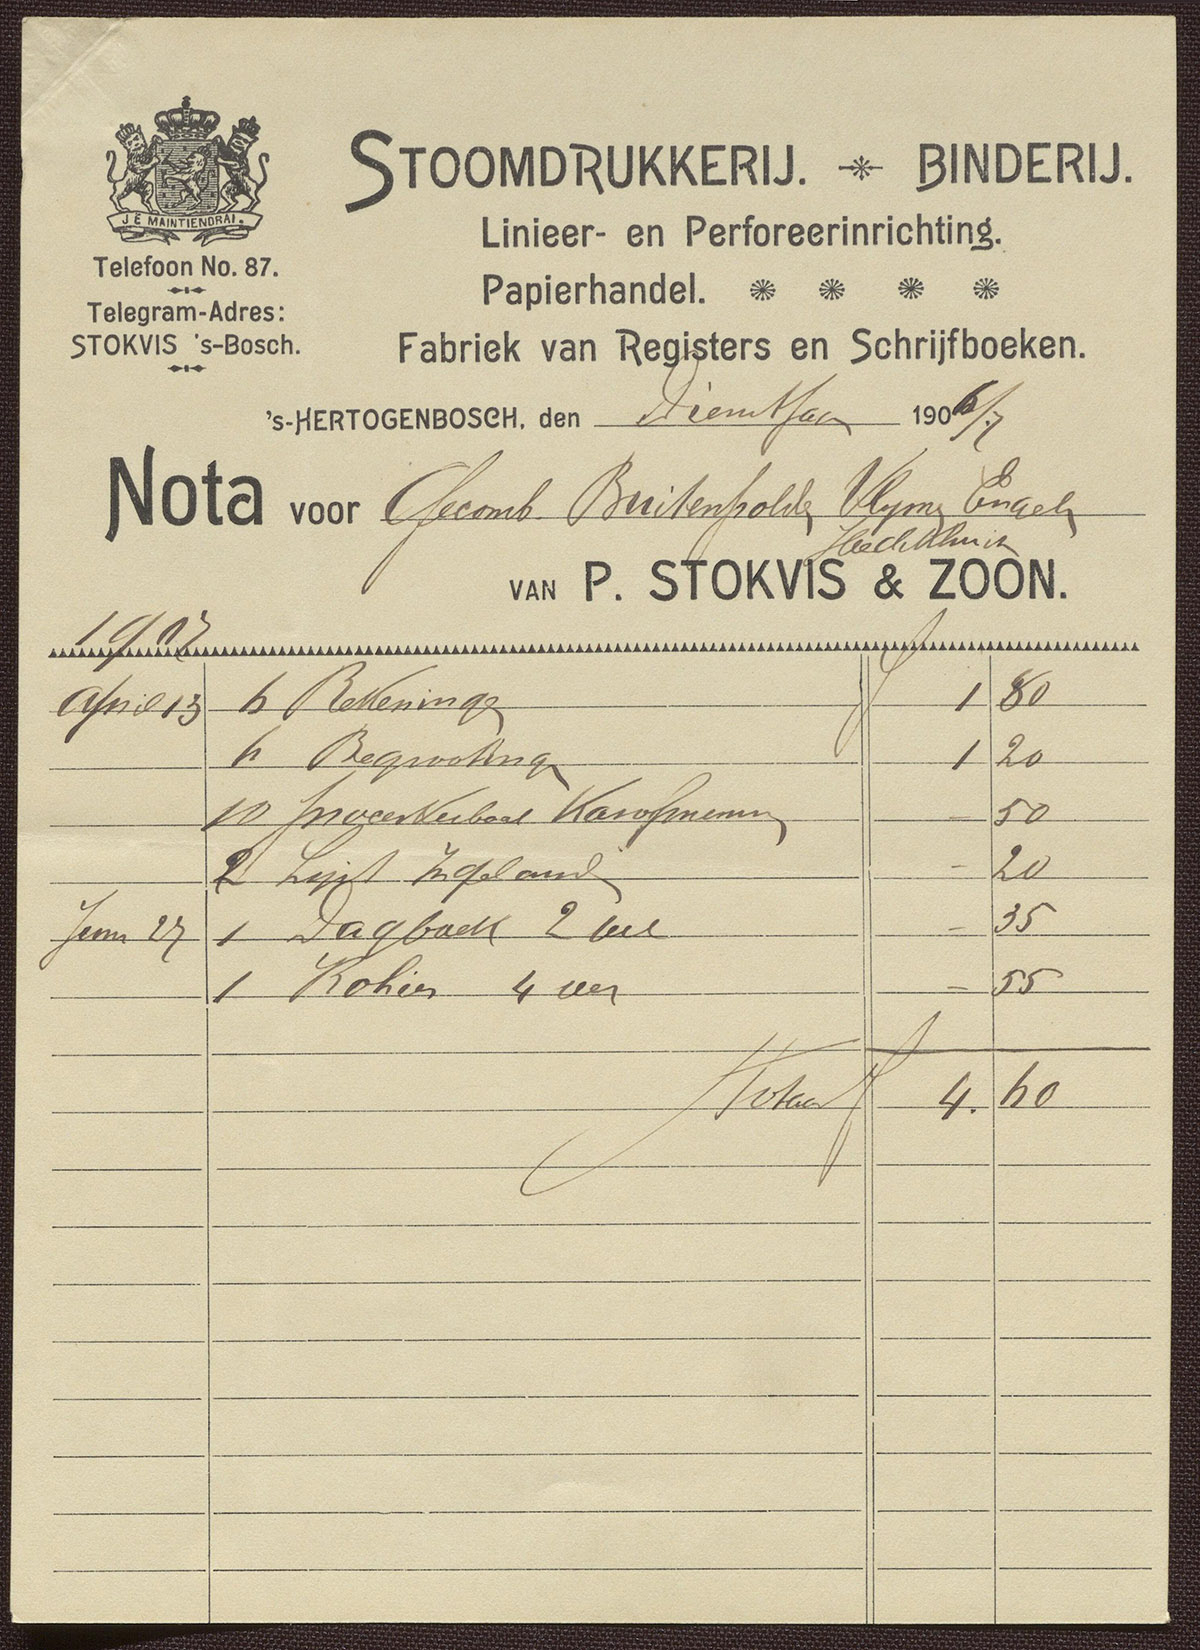 STOOMDRUKKERIJ. BINDERIJ.
Linieer- en Perforeerinrichting.
Papierhandel.
Fabriek van Registers en Schrijfboeken.
J E MAINTIENDRAI.
Telefoon No. 87.
Telegram-Adres:
STOKVIS 's-Bosch.
's-HERTOGENBOSCH, den Dienstjaar 1906/7
Nota voor Gecomb. Buitenpolder Vlijmen Engelen
VAN P. STOKVIS & ZOON.
1907
April 13 6 Rekeningen f 1 80
6 Begrooting 1 20
10 procesverbaal Kasopneming - 50
2 Lijst Ingelanden - 20
Juni 27 1 Dagboek 2 vel - 35
1 Kohier 4 vel - 55
Totaal f 4. 60